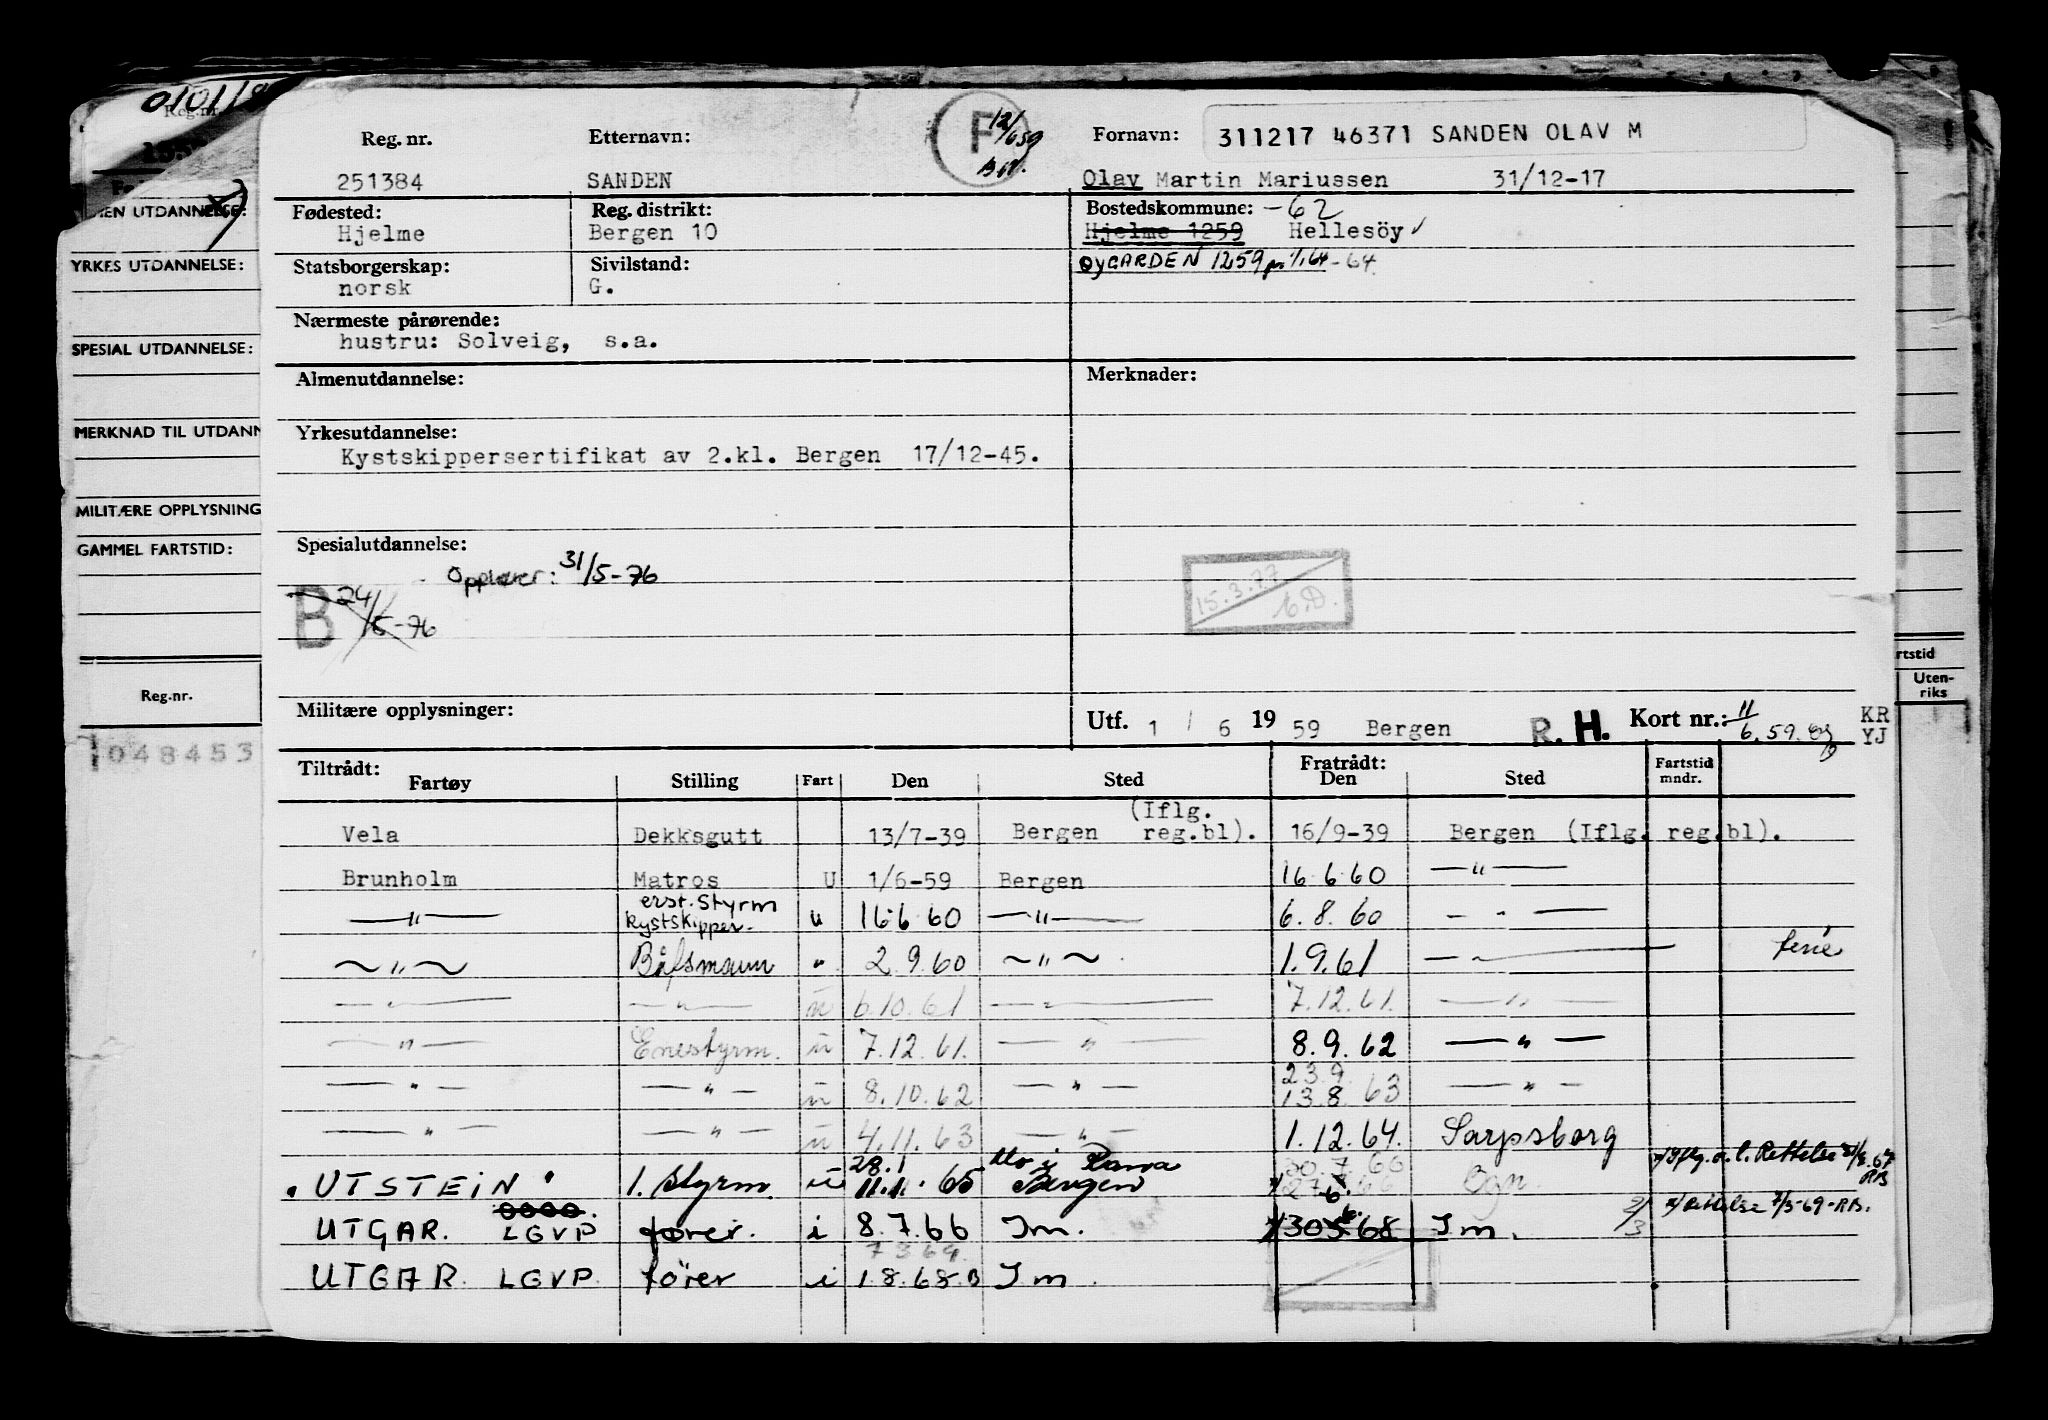 0101/8
Reg.nr.
Etternavn:
F 12/6 59
Fornavn:
311217 46371 SANDEN OLAV M
251384
SANDEN
Olav Martin Mariussen 31/12-17
Fødested:
Reg. distrikt:
Bostedskommune: -62
Hjelme
Bergen 10
Hjelme 1259 Hellesöy
Statsborgerskap:
Sivilstand:
ØYGARDEN 1259 pr 1/1 64 - 64.
norsk
G.
Nærmeste pårørende:
hustru: Solveig, s.a.
Almenutdannelse:
Merknader:
Yrkesutdannelse:
Kystskippersertifikat av 2.kl. Bergen 17/12-45.
Spesialutdannelse:
31/5-76
B 24/5-76
15.3.77
Militære opplysninger:
Utf. 1 / 6 19 59 Bergen R. H. Kort nr.: 11/6.59.
KR
YJ
Tiltrådt:
Fratrådt:
Fartstid mndr.
Fartøy Stilling Fart Den Sted Den Sted
Vela Dekksgutt 13/7-39 Bergen (Iflg. reg.bl). 16/9-39 Bergen (Iflg. reg.bl).
Brunholm Matros U 1/6-59 Bergen 16.6.60 —"—
—"— erst. styrm kystskipper. u 16.6.60 —"— 6.8.60 —"—
—"— Båtsmann " 2.9.60 —"— 1.9.61 —"— ferie
—"— —"— u 6.10.61 —"— 7.12.61. —"—
—"— Enestyrm. u 7.12.61. —"— 8.9.62 —"—
—"— —"— u 8.10.62 —"— 23.9. 13.8.63 —"—
—"— —"— u 4.11.63 —"— 1.12.64. Sarpsborg
"UTSTEIN" 1. styrm. u 28.1 11.1.65 Bergen Bgn.
UTGAR. LGVP fører. i 8.7.66 Im. 30.6.68 Im.
7 3 69
UTGAR. LGVP. fører i 1.8.68 B Im.
2/3
Rettelse 7/3-69-RB.
MEN UTDANNELSE:
YRKES UTDANNELSE:
SPESIAL UTDANNELSE:
MERKNAD TIL UTDANN
MILITÆRE OPPLYSNING
GAMMEL FARTSTID:
Reg.nr.
048453
rtstid
Uten-
riks